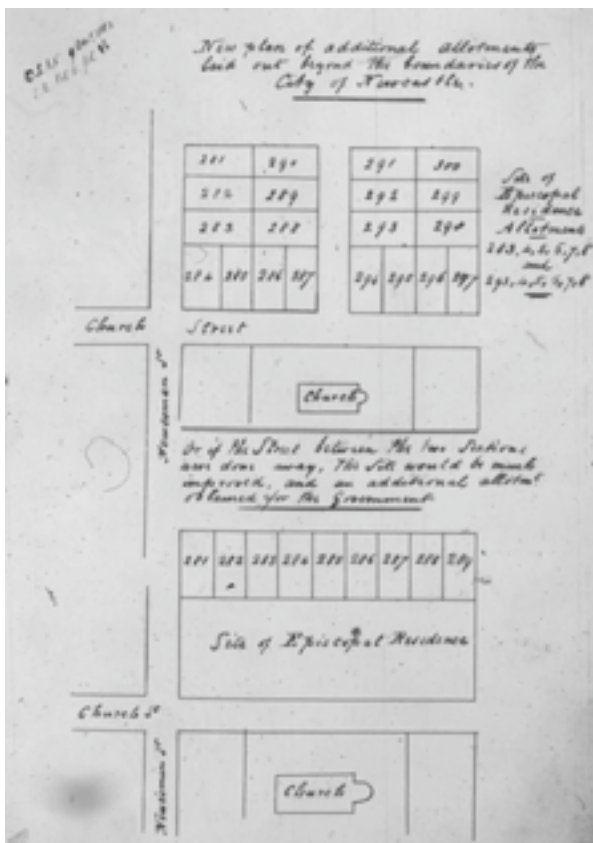 New plan of additional allotments
laid out beyond the boundaries of the
City of Newcastle.
281 290
282 289
283 288
284 285 286 287
291 300
292 299
293 298
294 295 296 297
Site of
Episcopal
Residence
Allotments
283, 4, 5, 6, 7, 8
and
293, 4, 5, 6, 7, 8
Church Street
Newcomen St
Church
Or if the Street between the two Sections
were done away, the site would be much
improved, and an additional allotmt
obtained for the Government
281 282 283 284 285 286 287 288 289
Site of Episcopal Residence
Church St
Newcomen St
Church